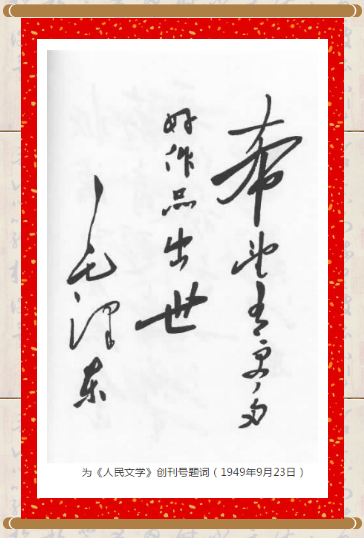 希望有更多
好作品出世
毛泽东
为《人民文学》创刊号题词（1949年9月23日）